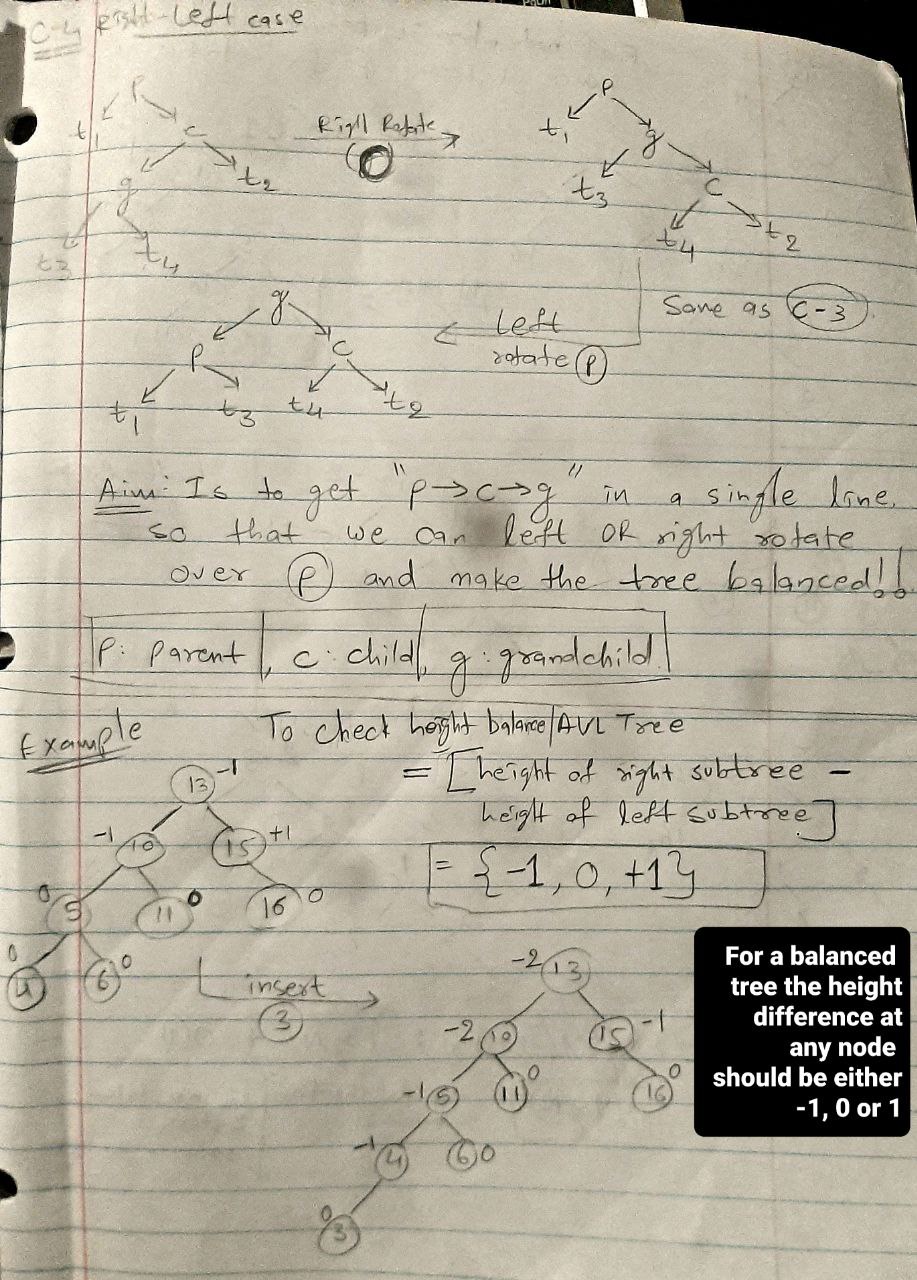 C-4 Right-Left case
p
t₁ c
g t₂
t₃ t₄
Right Rotate
p
t₁ g
t₃ c
t₄ t₂
Same as C-3
left
rotate p
g
p c
t₁ t₃ t₄ t₂
Aim: Is to get "p→c→g" in a single line,
so that we can left OR right rotate
over p and make the tree balanced!!
P: parent, c: child, g: grandchild.
Example
To check height balance/AVL Tree
= [height of right subtree -
height of left subtree]
= {-1, 0, +1}
13 -1
-1 10 15 +1
0 5 11 0 16 0
0 4 6 0
insert
3
-2 13
-2 10 15 -1
-1 5 11 0 16 0
-1 4 6 0
0 3
For a balanced
tree the height
difference at
any node
should be either
-1, 0 or 1